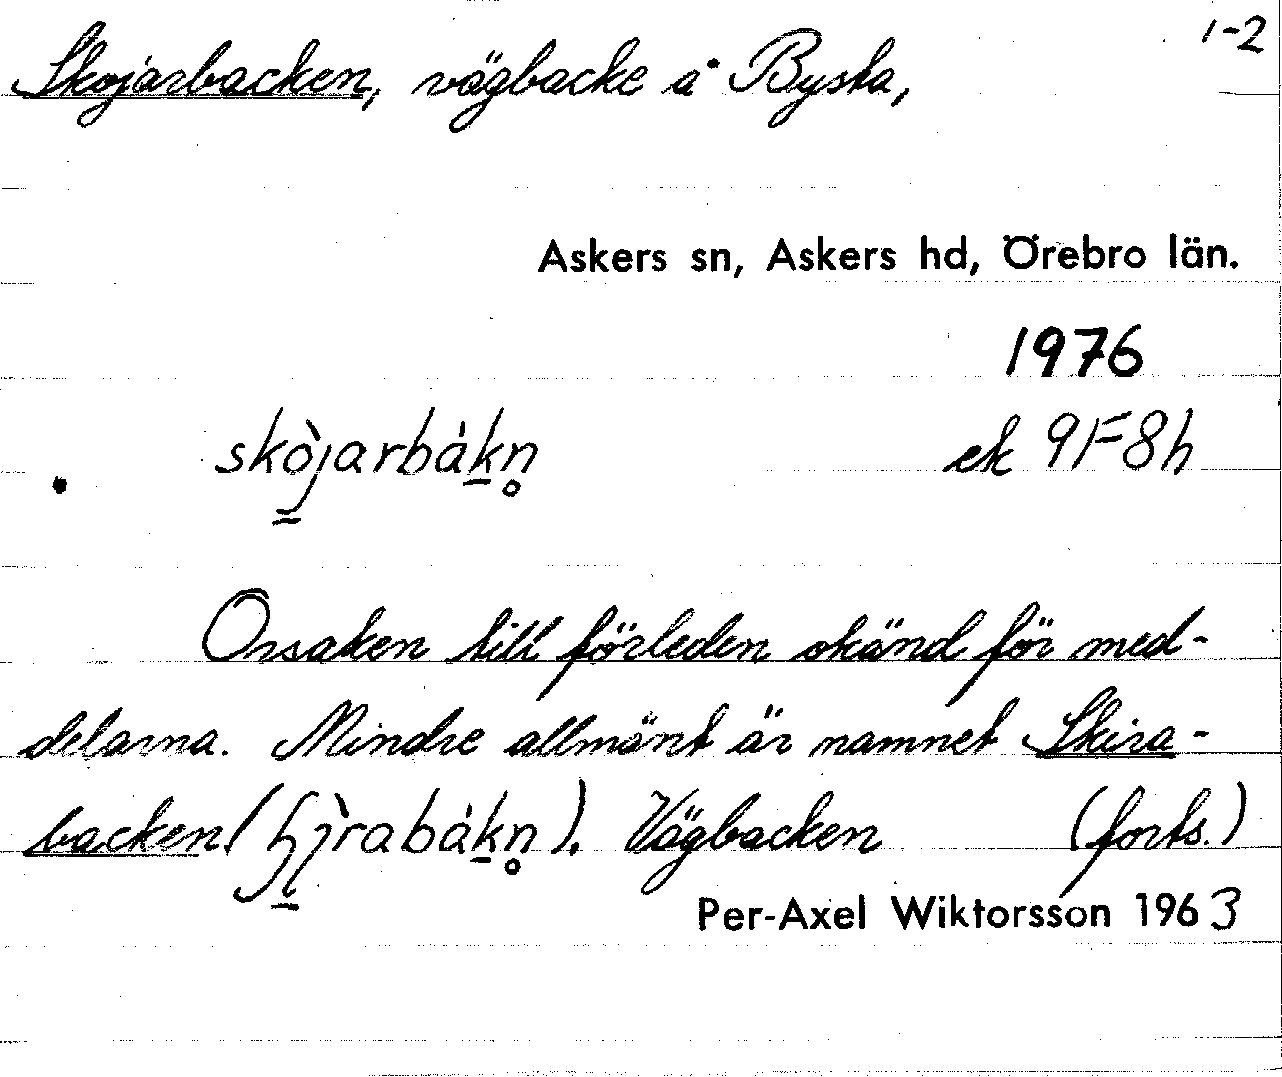 1-2
Skojarbacken, vägbacke å Bysta,
Askers sn, Askers hd, Örebro län.
1976
skòjarbàkn̥ ek 9F8h
Orsaken till förleden okänd för med-
delarna. Mindre allmänt är namnet Skira-
backen ( ). Vägbacken (forts.)
Per-Axel Wiktorsson 1963